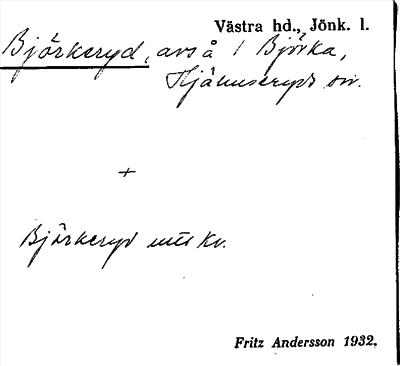 Västra hd., Jönk. l.
Björkeryd, avs å 1 Björka,
Hjälmseryds sn.
+
Björkeryd utt kv.
Fritz Andersson 1932.